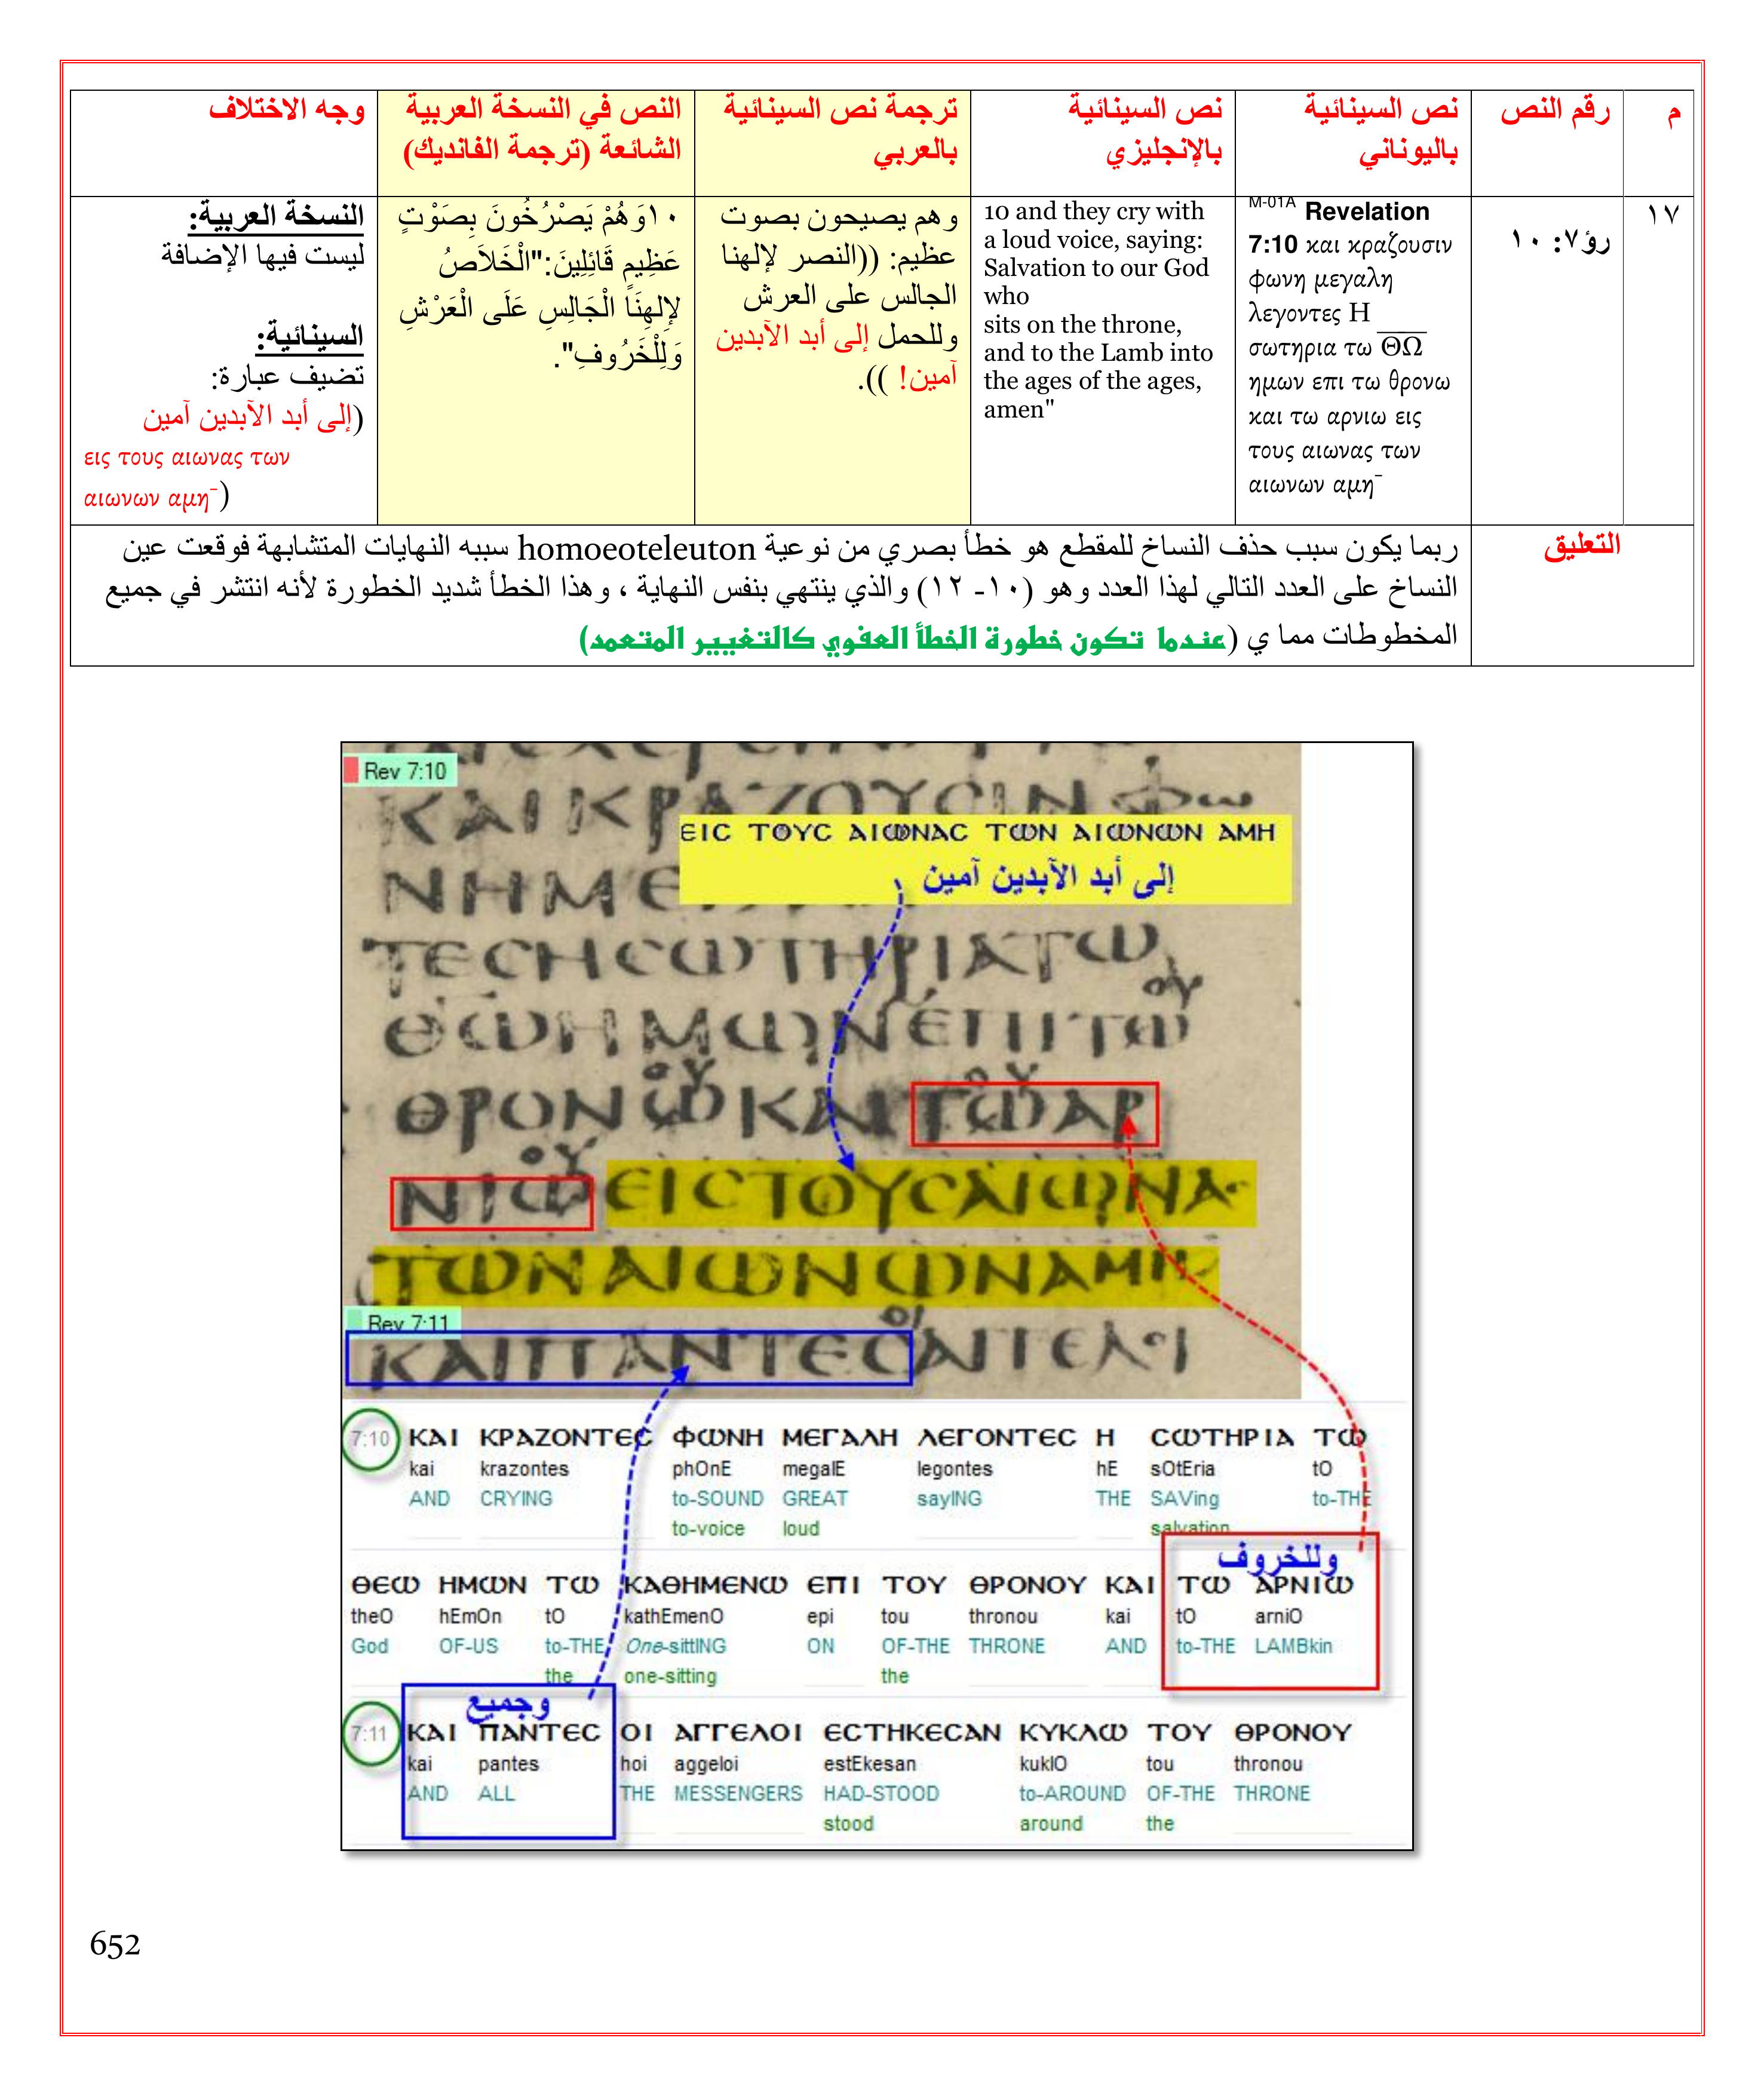 م
رقم النص
نص السينائية
باليوناني
نص السينائية
بالإنجليزي
ترجمة نص السينائية
بالعربي
النص في النسخة العربية
الشائعة (ترجمة الفانديك)
وجه الاختلاف
١٧
رؤ٧: ١٠
M-01A Revelation
7:10 και κραζουσιν
φωνη μεγαλη
λεγοντες Η
σωτηρια τω ΘΩ
ημων επι τω θρονω
και τω αρνιω εις
τους αιωνας των
αιωνων αμη¯
10 and they cry with
a loud voice, saying:
Salvation to our God
who
sits on the throne,
and to the Lamb into
the ages of the ages,
amen"
وهم يصيحون بصوت
عظيم: ((النصر لإلهنا
الجالس على العرش
وللحمل إلى أبد الآبدين
آمين! )).
١٠وَهُمْ يَصْرُخُونَ بِصَوْتٍ
عَظِيمٍ قَائِلِينَ:"الْخَلاَصُ
لإِلهِنَا الْجَالِسِ عَلَى الْعَرْشِ
وَلِلْخَرُوفِ".
النسخة العربية:
ليست فيها الإضافة
السينائية:
تضيف عبارة:
(إلى أبد الآبدين آمين
εις τους αιωνας των
αιωνων αμη¯)
التعليق
ربما يكون سبب حذف النساخ للمقطع هو خطأ بصري من نوعية homoeoteleuton سببه النهايات المتشابهة فوقعت عين
النساخ على العدد التالي لهذا العدد وهو (١٠- ١٢) والذي ينتهي بنفس النهاية ، وهذا الخطأ شديد الخطورة لأنه انتشر في جميع
المخطوطات مما ي (عندما تكون خطورة الخطأ العفوي كالتغيير المتعمد)
Rev 7:10
ΚΑΙΚΡΑΖΟΥϹΙΝφω
ΕΙϹ ΤΟΥϹ ΑΙΩΝΑϹ ΤΩΝ ΑΙΩΝΩΝ ΑΜΗ
إلى أبد الآبدين آمين
ΝΗΜΕ
ΤΕϹΗϹΩΤΗΡΙΑΤΩ
ΘΩΗΜΩΝΕΠΙΤΩ
ΘΡΟΝΩΚΑΙΤΩΑΡ
ΝΙΩΕΙϹΤΟΥϹΑΙΩΝΑ
ΤΩΝΑΙΩΝΩΝΑΜΗ
Rev 7:11
ΚΑΙΠΑΝΤΕϹΑΓΓΕΛΟΙ
7:10 ΚΑΙ ΚΡΑΖΟΝΤΕϹ ΦΩΝΗ ΜΕΓΑΛΗ ΛΕΓΟΝΤΕϹ Η ϹΩΤΗΡΙΑ ΤΩ
kai krazontes phOnE megalE legontes hE sOtEria tO
AND CRYING to-SOUND GREAT sayING THE SAVing to-THE
to-voice loud salvation
وللخروف
ΘΕΩ ΗΜΩΝ ΤΩ ΚΑΘΗΜΕΝΩ ΕΠΙ ΤΟΥ ΘΡΟΝΟΥ ΚΑΙ ΤΩ ΑΡΝΙΩ
theO hEmOn tO kathEmenO epi tou thronou kai tO arniO
God OF-US to-THE One-sittING ON OF-THE THRONE AND to-THE LAMBkin
the one-sitting the
وجميع
7:11 ΚΑΙ ΠΑΝΤΕϹ ΟΙ ΑΓΓΕΛΟΙ ΕϹΤΗΚΕϹΑΝ ΚΥΚΛΩ ΤΟΥ ΘΡΟΝΟΥ
kai pantes hoi aggeloi estEkesan kuklO tou thronou
AND ALL THE MESSENGERS HAD-STOOD to-AROUND OF-THE THRONE
stood around the
652